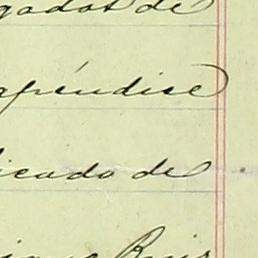 gados de
apéndice
licado de
Ruiz